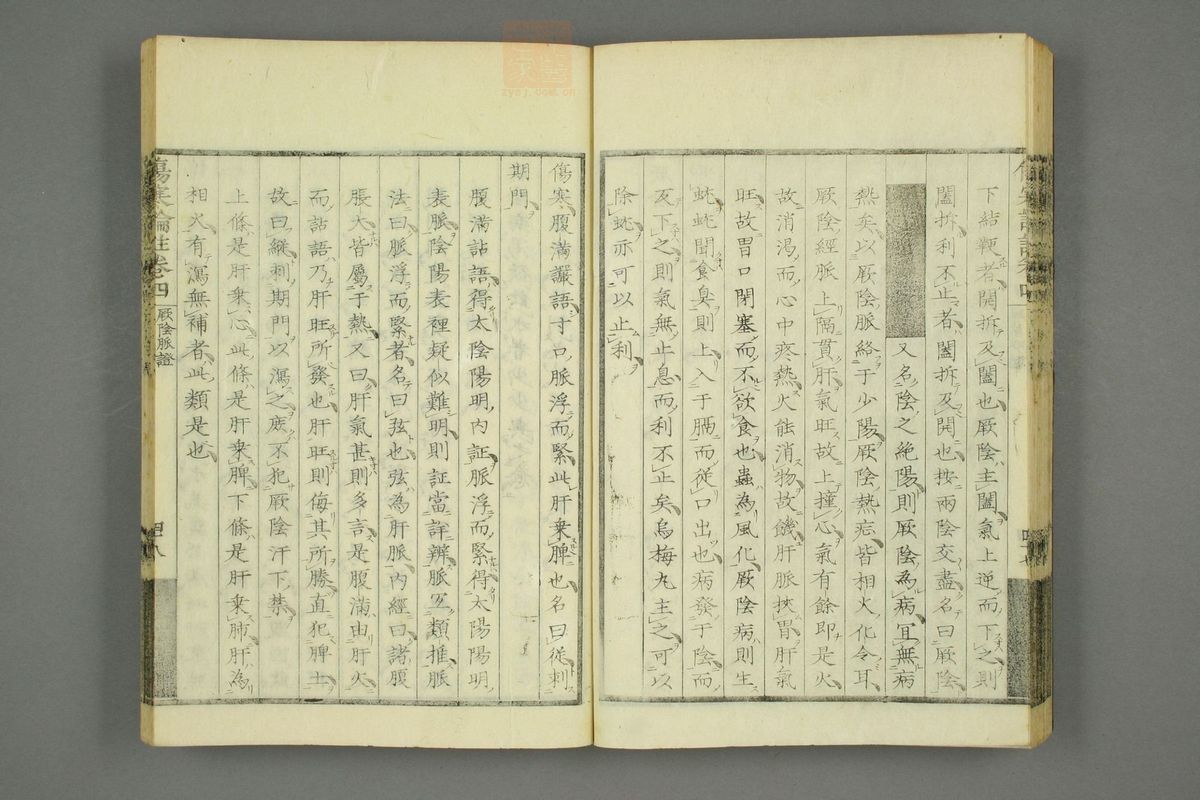 下結鞕者闔拆反闔也厥陰主闔氣上逆而下之則
闔拆利不止者闔拆反開也按兩陰交盡名曰厥陰
又名陰之絶陽則厥陰為病宜無病
熱矣以厥陰脈絡于少陽厥陰熱症皆相火化令耳
厥陰經脈上膈貫肝氣旺故上撞心氣有餘即是火
故消渴而心中疼熱火能消物故饑肝脈挾胃肝氣
旺故胃口閉塞而不欲食也蟲為風化厥陰病則生
蚘蚘聞食臭則上入于膈而從口出也病發于陰而
反下之則氣無止息而利不止矣烏梅丸主之可以
除蚘亦可以止利
傷寒腹滿讝語寸口脈浮而緊此肝乗脾也名曰従刺
期門
腹滿詀語得太陰陽明内証脈浮而緊得太陽陽明
表脈陰陽表裡疑似難明則証當詳辨脈宜類推脈
法曰脈浮而緊者名曰弦也弦為肝脈内經曰諸腹
脹大皆屬于熱又曰肝氣甚則多言是腹滿由肝火
而詀語乃肝旺所發也肝旺則侮其所勝直犯脾土
故曰縦刺期門以瀉之庶不犯厥陰汗下禁
上條是肝乗心此條是肝乗脾下條是肝乗肺肝為
相火有瀉無補者此類是也
傷寒論註卷四
厥陰脈證
四八